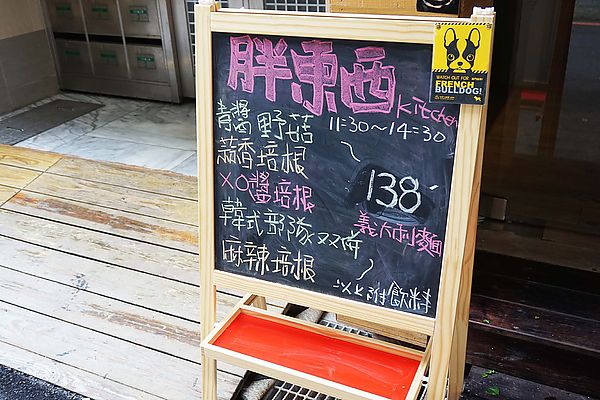 胖東西
Kitchen
11:30~14:30
青醬野菇
蒜香培根
XO醬培根
韓式部隊双响
麻辣培根
138
義大利麵
以上附飲料
WATCH OUT FOR
FRENCH
BULLDOG!